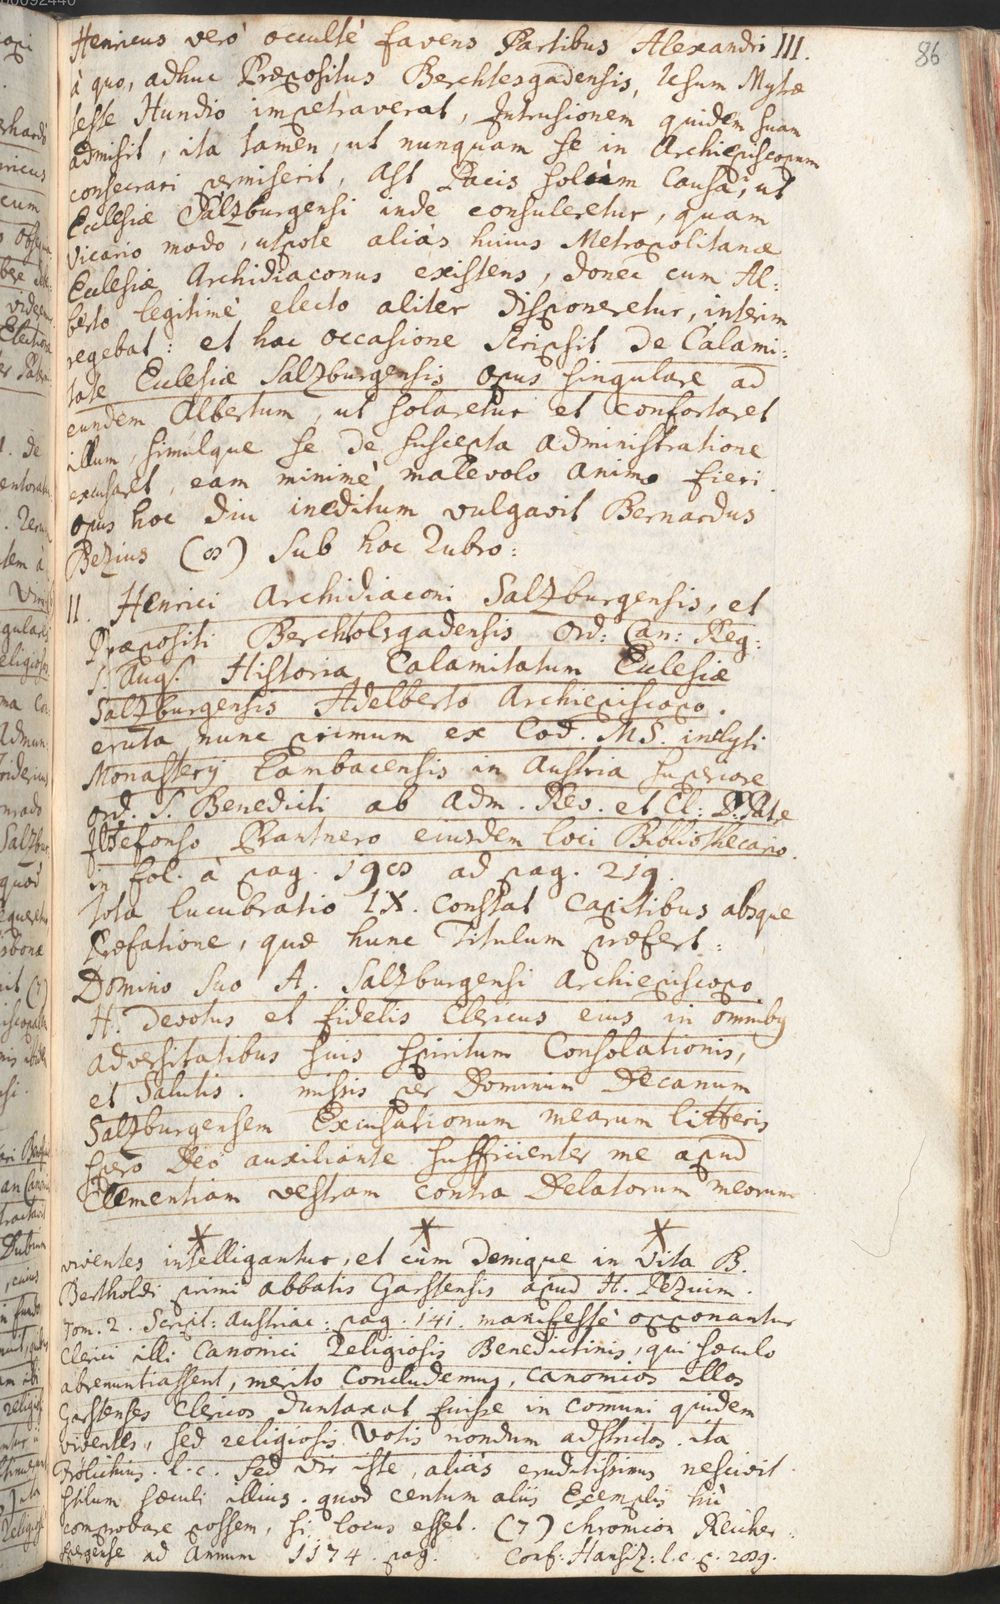 86
Henricus verò occultè favens Partibus Alexandri III.
à quo, adhuc Præpositus Berchtesgadensis, Usum Mytræ
teste Hundio impetraverat, Intrusionem quidem suam
admisit, ita tamen, ut nunquam se in Archiepiscopum
consecrari permiserit, ast Pacis solùm Causâ, ut
Ecclesiæ Salzburgensi inde consuleretur, quam
Vicario modo, utpote aliàs huius Metropolitanæ
Ecclesiæ Archidiaconus existens, donec cum Al:
berto legitimè electo aliter disponeretur, interim
regebat: et hac occasione scripsit De Calami:
tate Ecclesiæ Salzburgensis opus singulare ad
eundem Albertum, ut solaretur et confortaret
illum, simulque se de suscepta administratione
excusaret, eam minimè malevolo animo fieri.
opus hoc diu ineditum vulgavit Bernardus
Pezius (8) sub hoc Rubro:
II. Henrici Archidiaconi Salzburgensis, et
Præpositi Bercholsgadensis Ord: Can: Reg:
S. Aug. Historia Calamitatum Ecclesiæ
Salzburgensis Adelberto Archiepiscopo.
eruta nunc primum ex Cod. MS. inclyti
Monasterij Lambacensis in Austria superiore
ord. S. Benedicti ab Adm. Rev. et Cl: P. Pate
Ildefonso Prantnero eiusdem loci Bibliothecario.
in fol. à pag. 198 ad pag. 219.
Tota lucubratio IX. constat capitibus absque
Præfatione, quæ hunc Titulum præfert:
Domino suo A. Salzburgensi Archiepiscopo
H. devotus et fidelis Clericus eius in omnibus
adversitatibus suis spiritum Consolationis,
et Salutis. missis per Dominum Decanum
Salzburgensem Excusationum mearum litteris
spero Deo auxiliante sufficienter me apud
Clementiam vestram contra Delatorum meorum
* * *
viventes intelligantur, et cùm denique in Vita B.
Bertholdi primi abbatis Garstensis apud H. Pezium.
Tom. 2. Script: Austriac: pag. 141. manifestè opponantur
Clerici illi Canonici Religiosis Benedictinis, qui sæculo
abrenuntiassent, merito Concludemus, Canonicos illos
Garstenses Clericos duntaxat fuisse in comuni quidem
viventes, sed religiosis votis nondum adstrictos. ita
Frölichius. l. c. sed vir iste, aliàs eruditissimus nescivit
stilum sæculi illius. quod centum aliis Exemplis hìc
comprobare possem, si locus esset. (7) Chronicon Reicher:
spergense ad Annum 1174. pag. Conf: Hansiz: l. c. p. 289.